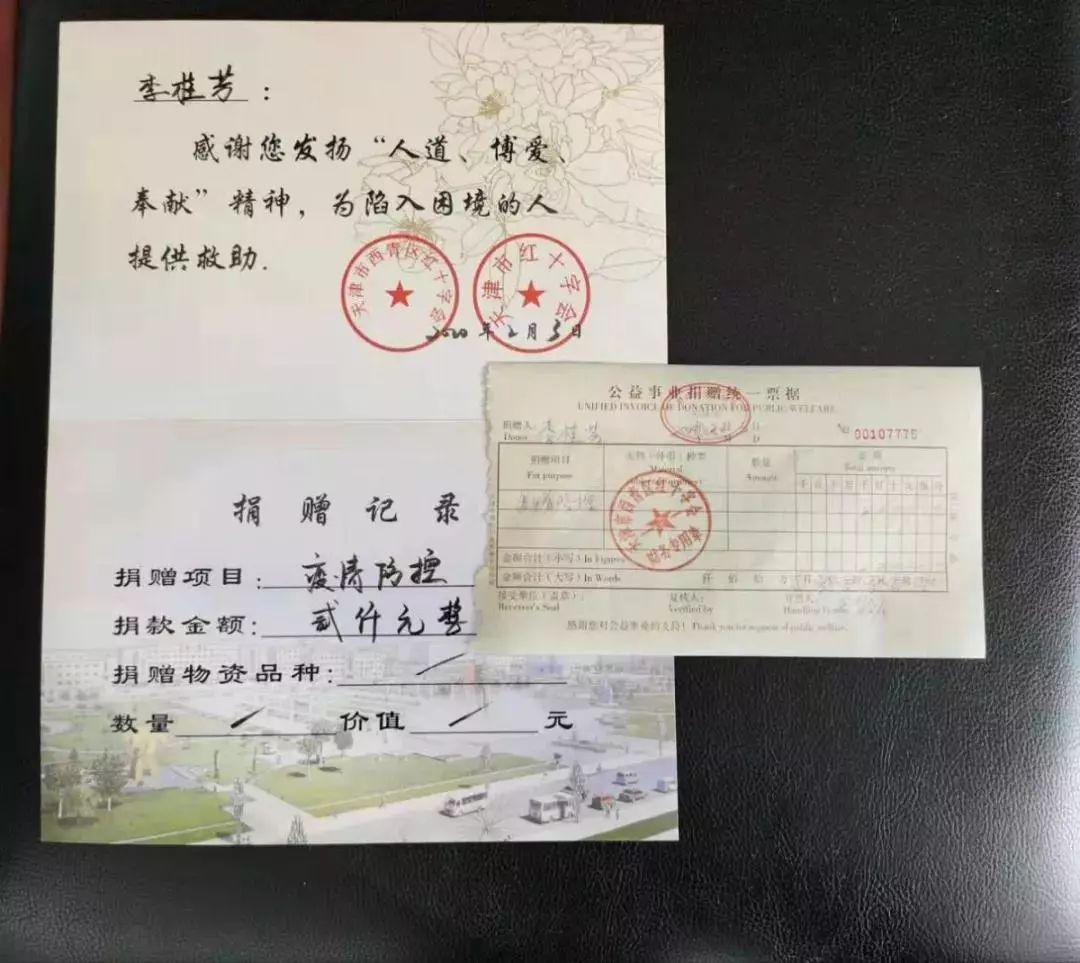 李桂芳：
感谢您发扬“人道、博爱、
奉献”精神，为陷入困境的人
提供救助.
天津市西青区红十字会
天津市红十字会
2020年2月3日
捐赠记录
捐赠项目：疫情防控
捐款金额：贰仟元整
捐赠物资品种：/
数量 / 价值 / 元
公益事业捐赠统一票据
UNIFIED INVOICE OF DONATION FOR PUBLIC WELFARE
捐赠人 李桂芳
Donor
Y M D
№ 00107775
捐赠项目
For purpose
实物（外币）种类
Material
数量
Amount
金额
Total amount
千百十万千百十元角分
疫情防控
天津市西青区红十字会
金额合计（小写）In Figures
金额合计（大写）In Words 仟 佰 拾 万
接受单位（盖章）：
Receiver's Seal
复核人：
Verified by
开票人：
Handling Person
感谢您对公益事业的支持！Thank you for support of public welfare!